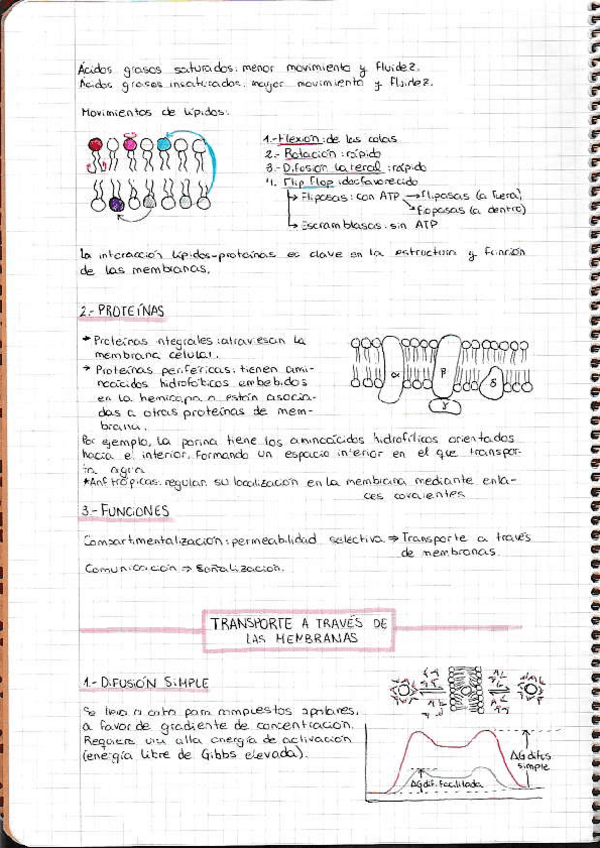 Ácidos grasos saturados: menor movimiento y fluidez.
Ácidos grasos insaturados: mayor movimiento y fluidez.
Movimientos de lípidos:
1.- Flexión: de las colas
2.- Rotación: rápido
3.- Difusión lateral: rápido
4. Flip Flop: desfavorecido
↳ Flipasas: con ATP → flipasas (a fuera)
flopasas (a dentro)
↳ Escramblasas: sin ATP
La interacción lípidos-proteínas es clave en la estructura y función
de las membranas.
2.- PROTEÍNAS
→ Proteínas integrales: atraviesan la
membrana celular.
→ Proteínas periféricas: tienen ami-
noácidos hidrofóbicos embebidos
en la hemicapa o están asocia-
das a otras proteínas de mem-
brana.
α
β
γ
δ
Por ejemplo, la porina tiene los aminoácidos hidrofílicos orientados
hacia el interior, formando un espacio interior en el que transpor-
ta agua
regulan su localización en la membrana mediante enla-
ces covalentes
3.- FUNCIONES
Compartimentalización: permeabilidad selectiva ⇒ Transporte a través
de membranas
Comunicación ⇒ Señalización.
TRANSPORTE A TRAVÉS DE
LAS MEMBRANAS
1.- DIFUSIÓN SIMPLE
Se lleva a cabo para compuestos apolares,
a favor de gradiente de concentración.
Requiere una alta energía de activación
(energía libre de Gibbs elevada).
ΔG difus
simple
ΔG dif. facilitada